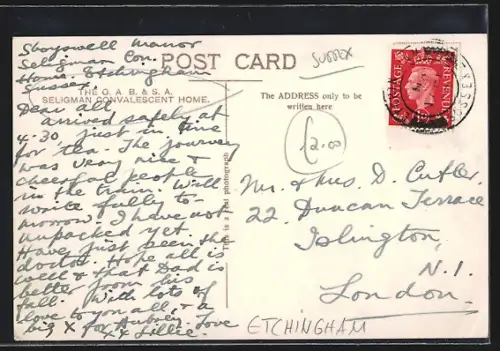 Sboyswell Manor
Seligman Con.
Home. Etchingham
Sussex.
POST CARD
SUSSEX
THE O. A. B. & S. A.
SELIGMAN CONVALESCENT HOME.
The ADDRESS only to be
written here
Dear all
arrived safely at
4-30 just in time
for tea. The journey
was very nice &
cheerful people
in the train. Will
write fully to-
morrow. I have not
unpacked yet.
Have just seen the
doctor. Hope all is
well & that Dad is
better from his
fall. With lots of
love to you all, & a
big X for Aubrey. Love
XX Lillie.
This is a real photograph
£2.00
POSTAGE
REVENUE
SUSSEX
Mr. & Mrs. D. Cutler.
22. Duncan Terrace
Islington,
N.1.
London.
ETCHINGHAM